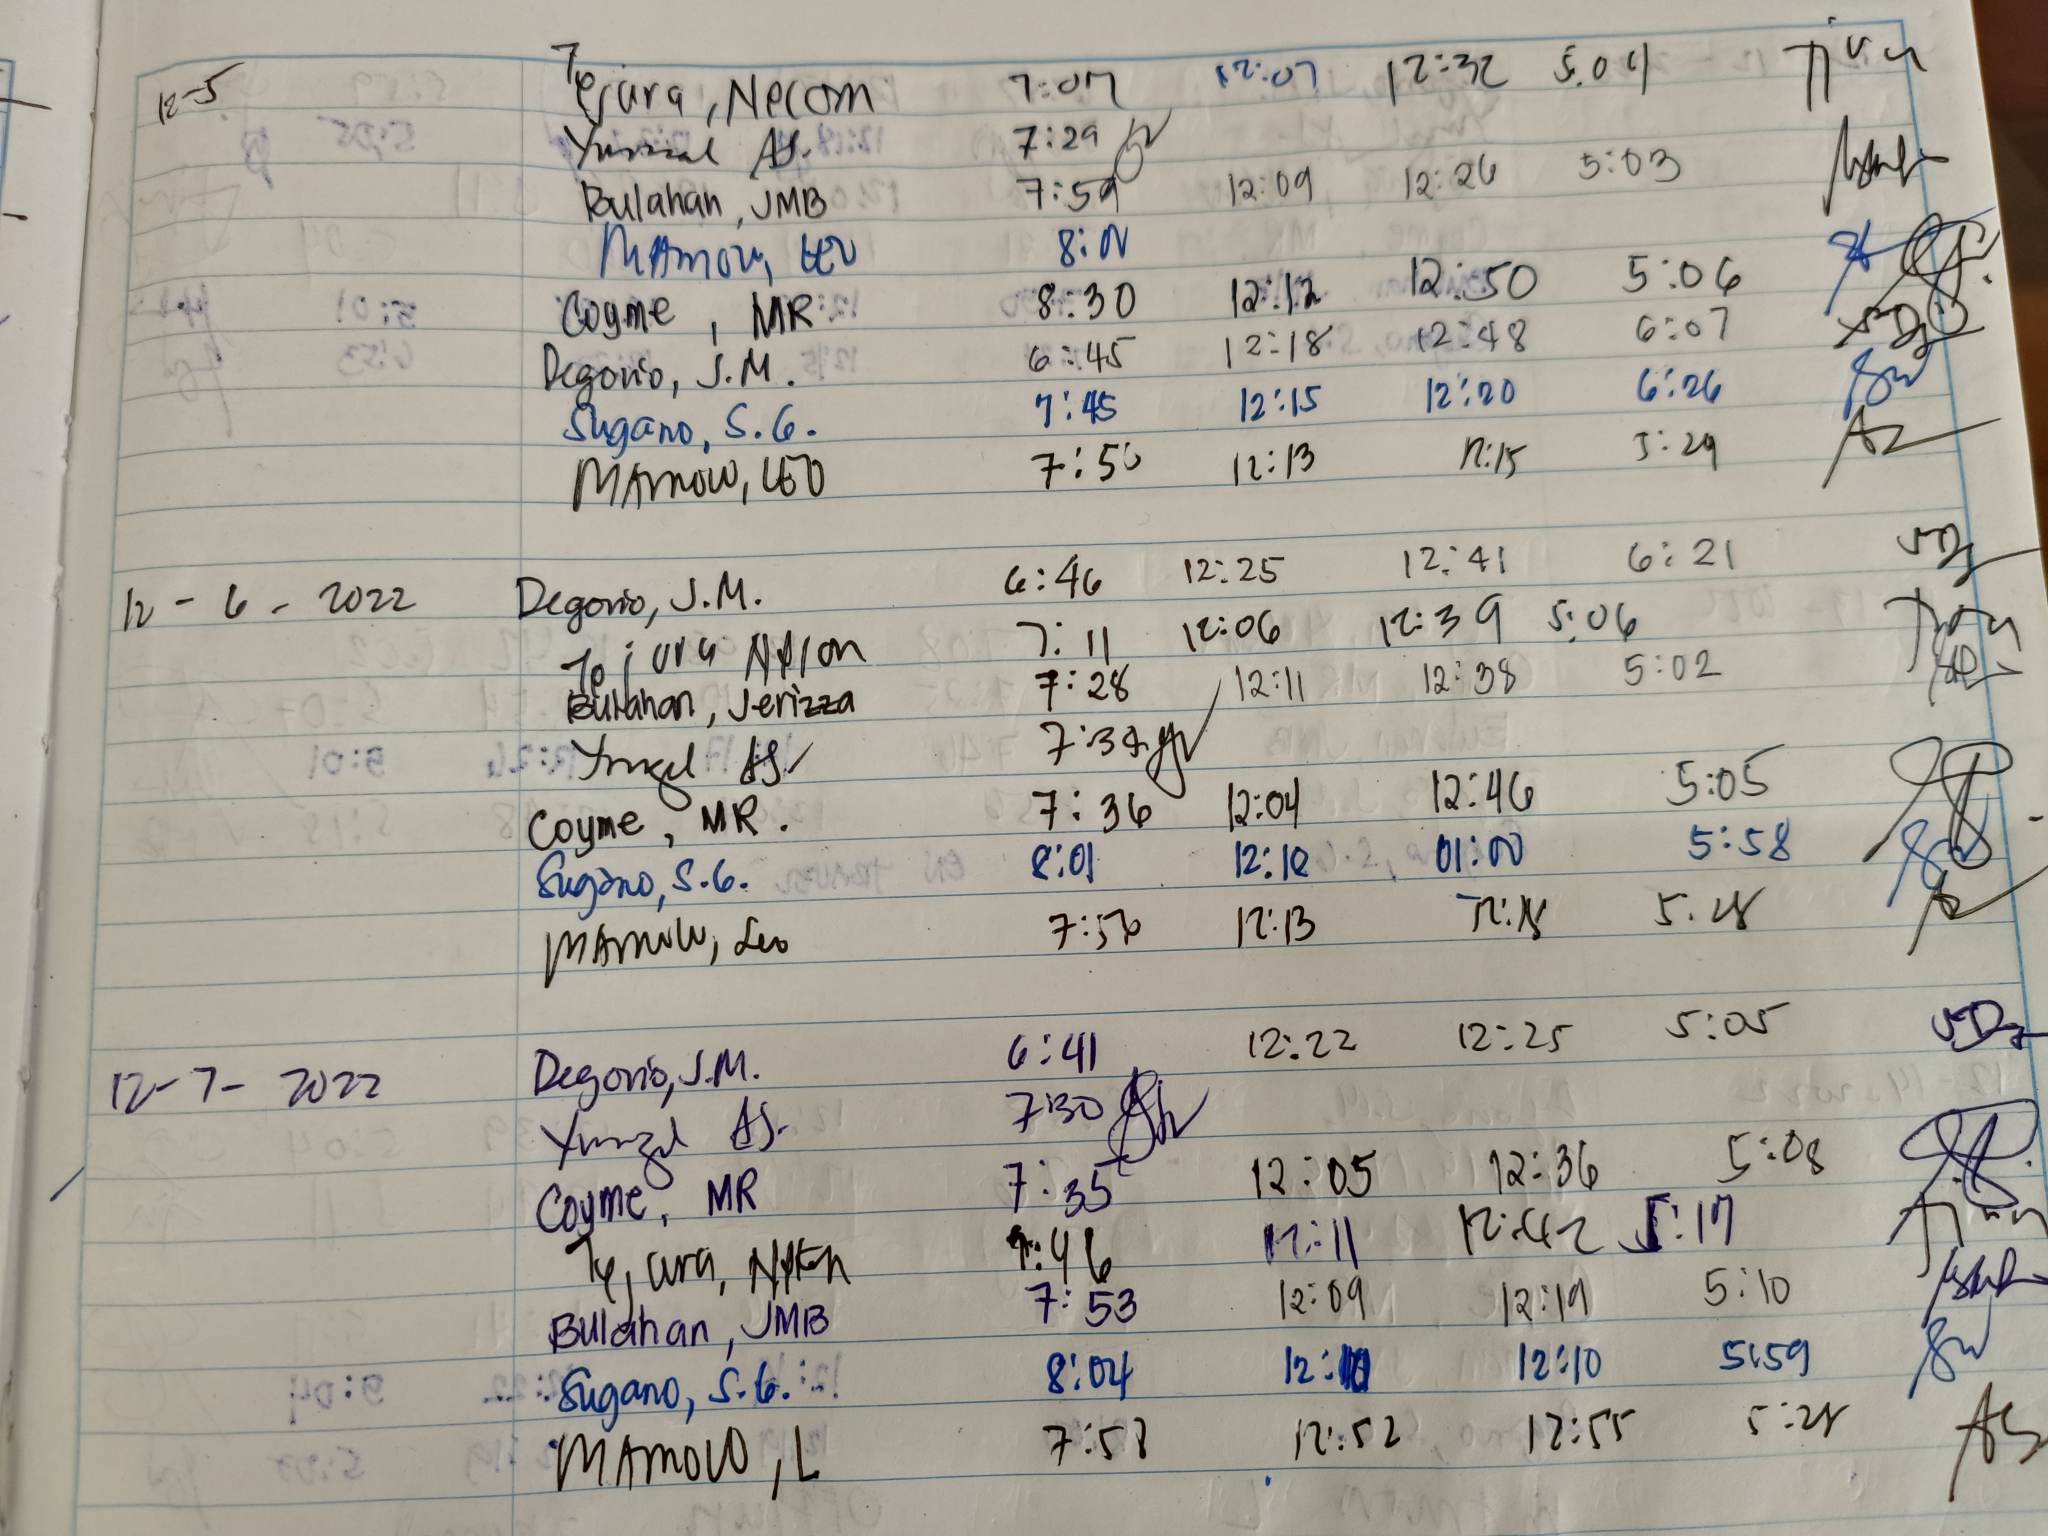 12-5 Tejura, Necom 7:07 12:07 12:32 5:04
AS. 7:29
Bulahan, JMB 7:59 12:09 12:26 5:03
MAmolo, LEO 8:00
Coyme, MR 8:30 12:12 12:50 5:06
Degorio, J.M. 6:45 12:18 12:48 6:07
Sugano, S.G. 7:45 12:15 12:20 6:26
MAmolo, LEO 7:56 12:13 12:15 5:29
12-6-2022 Degorio, J.M. 6:46 12:25 12:41 6:21
Tejura 7:11 12:06 12:39 5:06
Bulahan, Jerizza 7:28 12:11 12:38 5:02
AS
Coyme, MR. 7:36 12:04 12:46 5:05
Sugano, S.G. 8:01 12:10 01:00 5:58
MAmolo, Leo 7:56 12:13 12:18 5:28
12-7-2022 Degorio, J.M. 6:41 12:22 12:25 5:05
AS. 7:30
Coyme, MR 7:35 12:05 12:36 5:08
Tejura, 7:46 12:11 12:42 5:17
Bulahan, JMB 7:53 12:09 12:19 5:10
Sugano, S.G. 8:04 12:10 12:10 5:59
MAmolo, L 7:58 12:52 12:55 5:28